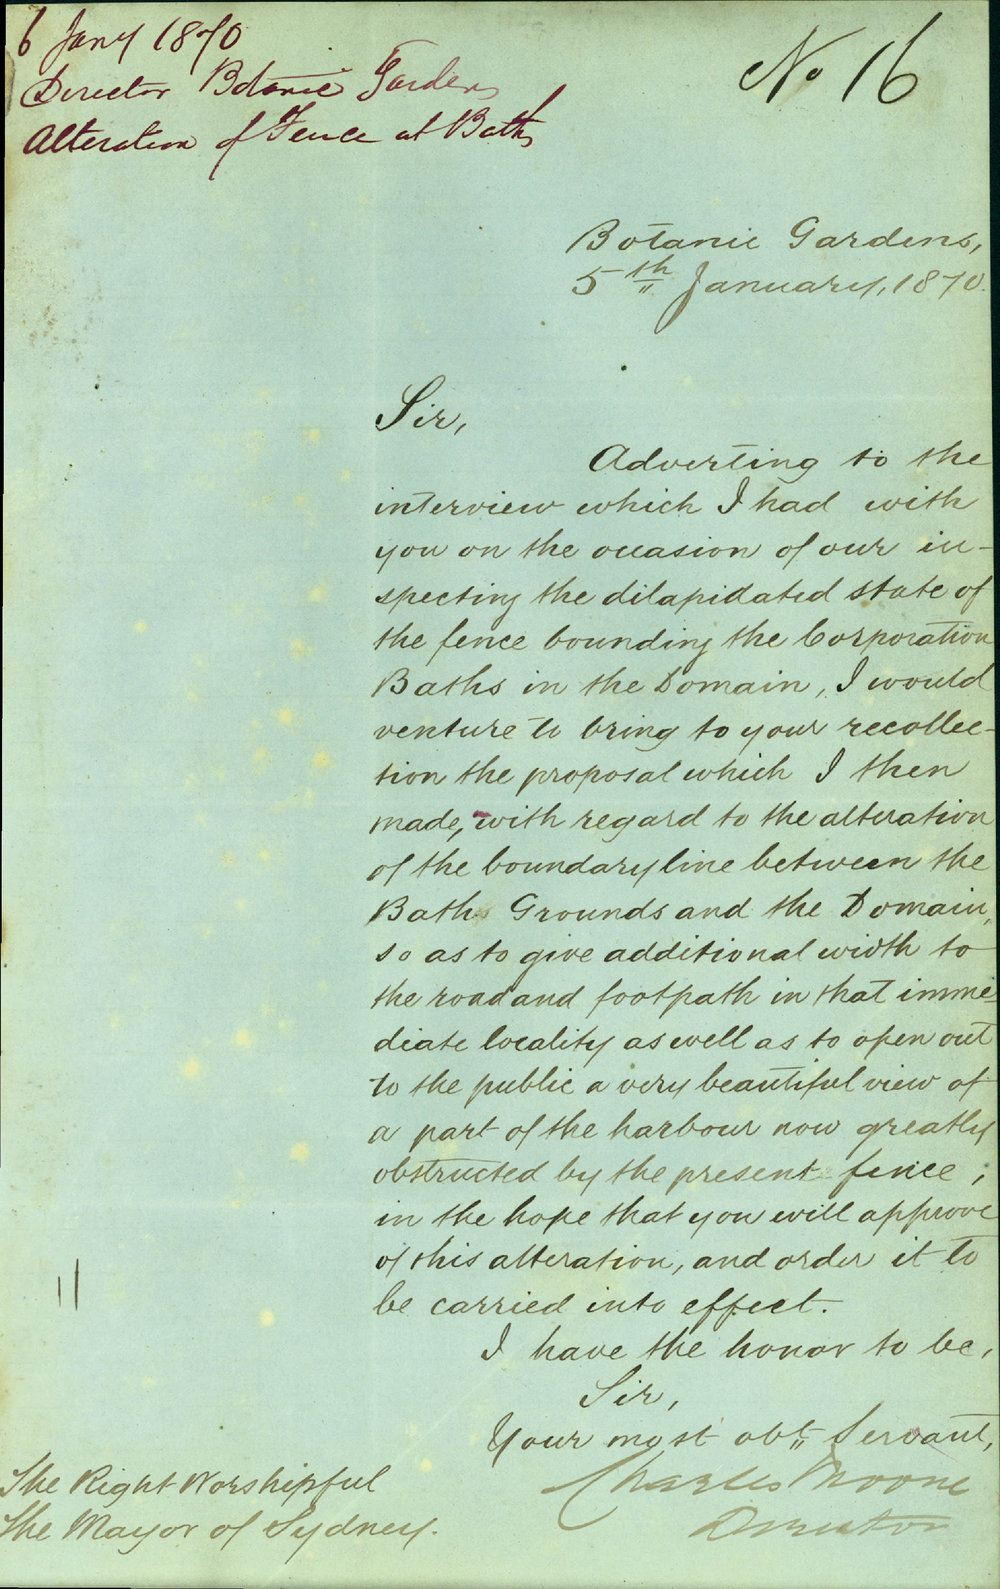 6 Jany 1870
Director Botanic Gardens
Alteration of Fence at Baths
No 16
Botanic Gardens,
5th January, 1870.
Sir,
Adverting to the
interview which I had with
you on the occasion of our in-
specting the dilapidated state of
the fence bounding the Corporation
Baths in the Domain, I would
venture to bring to your recollec-
tion the proposal which I then
made, with regard to the alteration
of the boundary line between the
Baths Grounds and the Domain,
so as to give additional width to
the road and footpath in that imme-
diate locality as well as to open out
to the public a very beautiful view of
a part of the harbour now greatly
obstructed by the present fence;
in the hope that you will approve
of this alteration, and order it to
be carried into effect.
I have the honor to be,
Sir,
Your most obt. Servant,
Charles Moore
Director
The Right Worshipful
The Mayor of Sydney.